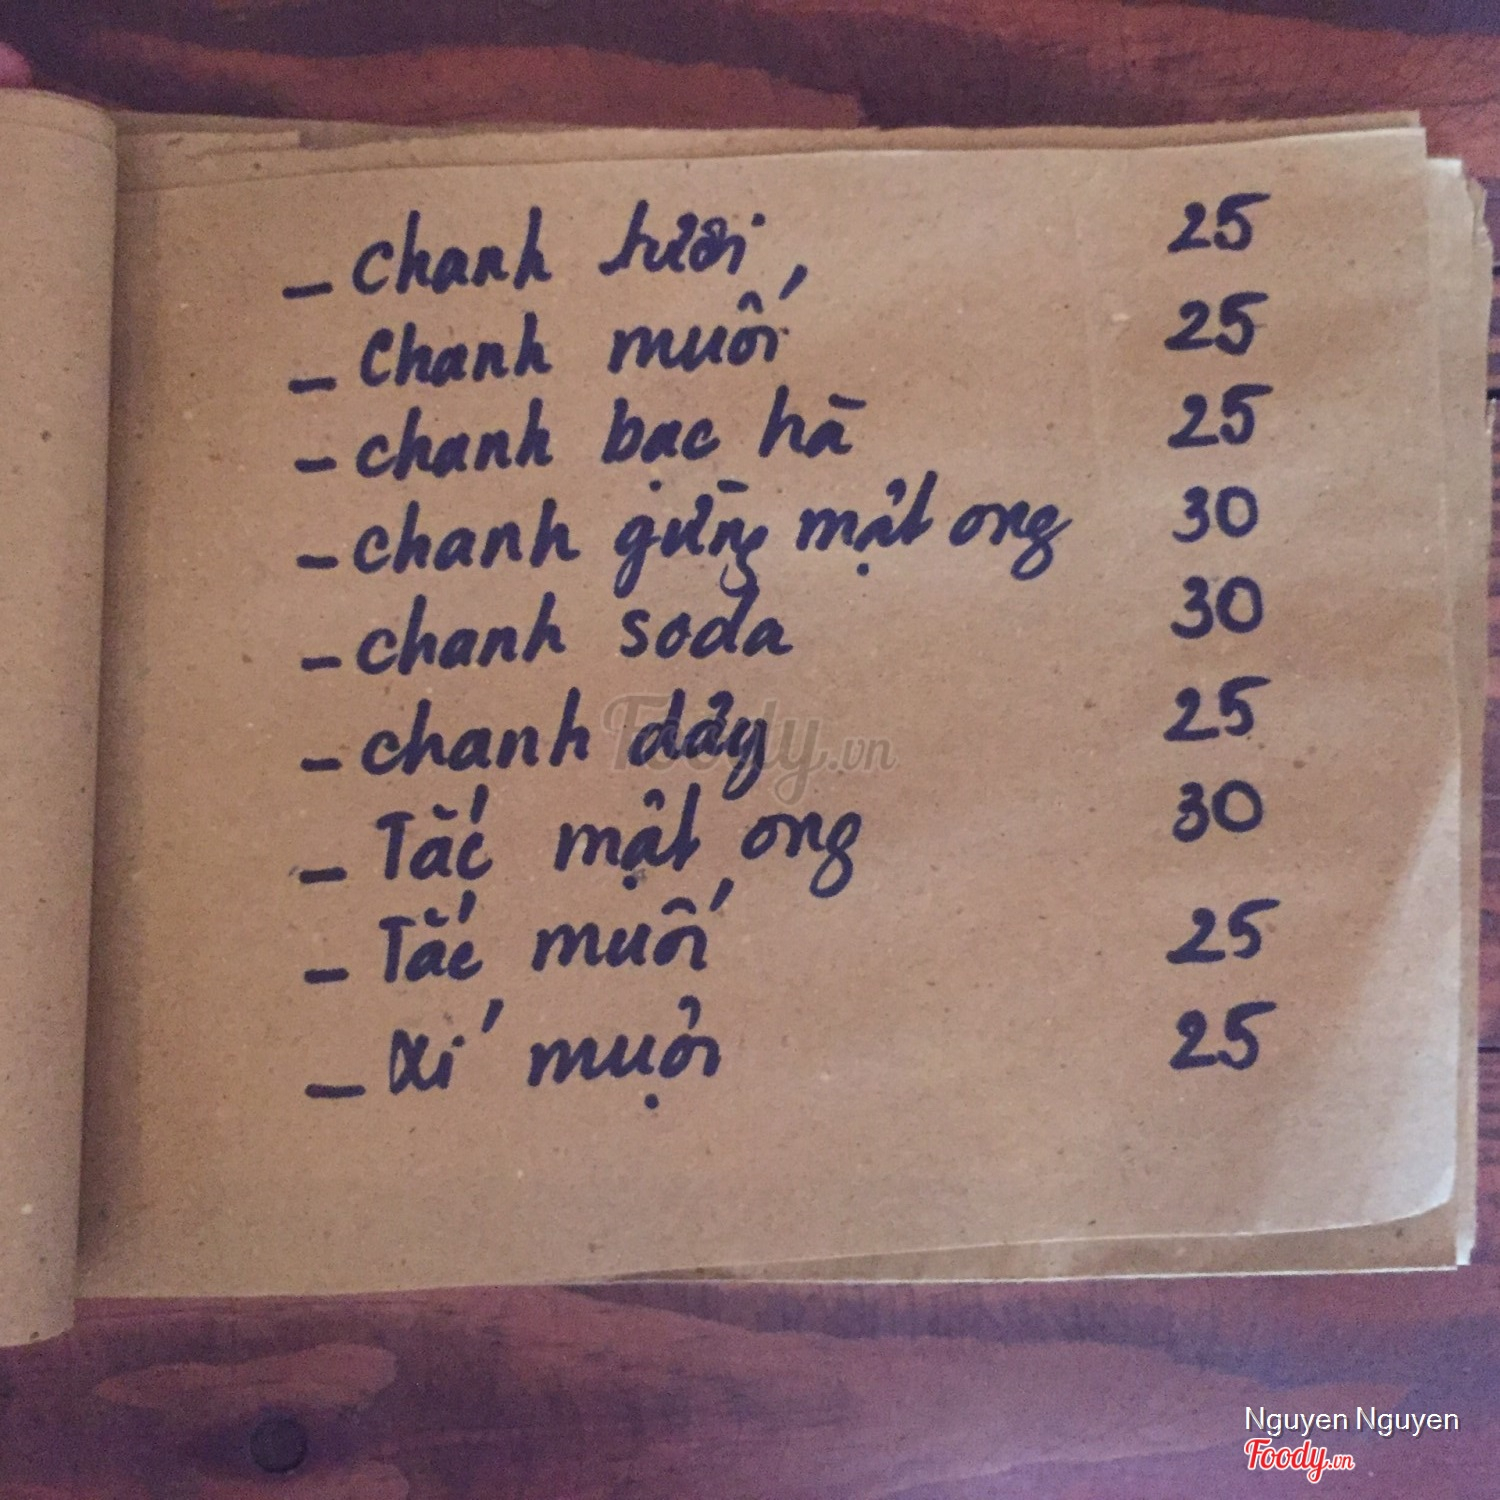 - Chanh tươi 25
- Chanh muối 25
- chanh bạc hà 25
- chanh gừng mật ong 30
- chanh soda 30
- chanh dây 25
- Tắc mật ong 30
- Tắc muối 25
- Xí muội 25
Foody.vn
Nguyen Nguyen
Foody.vn